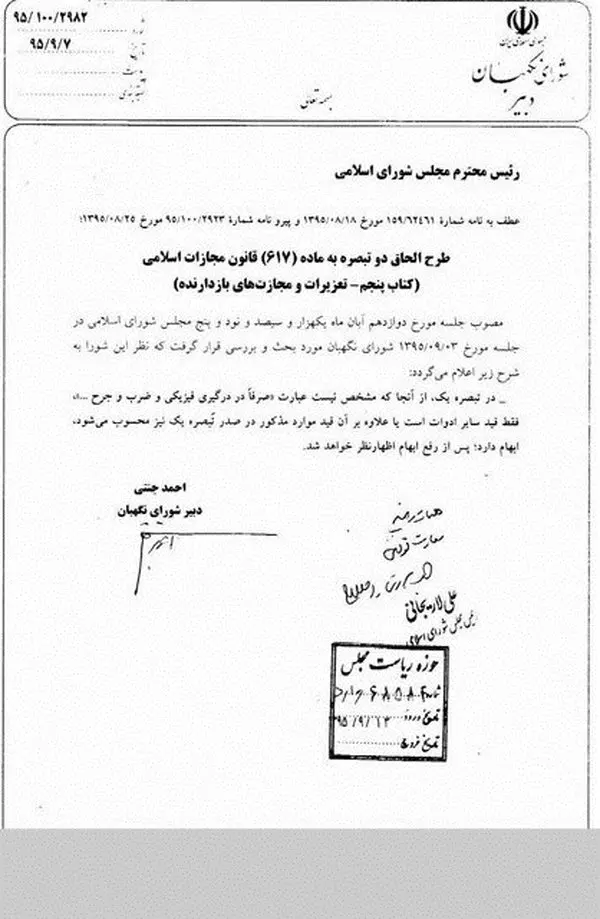 جمهوری اسلامی ایران
شورای نگهبان
دبیر
بسمه تعالی
۹۵/۱۰۰/۲۹۸۲
تاریخ
۹۵/۹/۷
پیوست
رئیس محترم مجلس شورای اسلامی
عطف به نامه شمارهٔ ۱۵۹/۶۲۴۶۱ مورخ ۱۳۹۵/۰۸/۱۸ و پیرو نامه شمارهٔ ۹۵/۱۰۰/۲۹۲۳ مورخ ۱۳۹۵/۰۸/۲۵؛
طرح الحاق دو تبصره به ماده (۶۱۷) قانون مجازات اسلامی
(کتاب پنجم- تعزیرات و مجازت‌های بازدارنده)
مصوب جلسه مورخ دوازدهم آبان ماه یکهزار و سیصد و نود و پنج مجلس شورای اسلامی در
جلسه مورخ ۱۳۹۵/۰۹/۰۳ شورای نگهبان مورد بحث و بررسی قرار گرفت که نظر این شورا به
شرح زیر اعلام می‌گردد:
_ در تبصره یک، از آنجا که مشخص نیست عبارت «صرفاً در درگیری فیزیکی و ضرب و جرح ...»،
فقط قید سایر ادوات است یا علاوه بر آن قید موارد مذکور در صدر تبصره یک نیز محسوب می‌شود،
ابهام دارد؛ پس از رفع ابهام اظهارنظر خواهد شد.
احمد جنتی
دبیر شورای نگهبان
معاونت قوانین
علی لاریجانی
رئیس مجلس شورای اسلامی
حوزه ریاست مجلس
شماره
تاریخ ورود ۹۵/۹/۱۳
تاریخ خروج